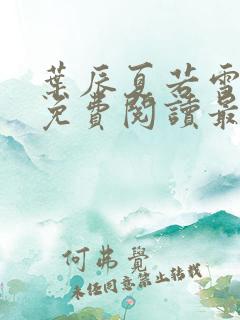 葉辰夏若雪
免費閱讀最
何弗覺
未经同意禁止转载